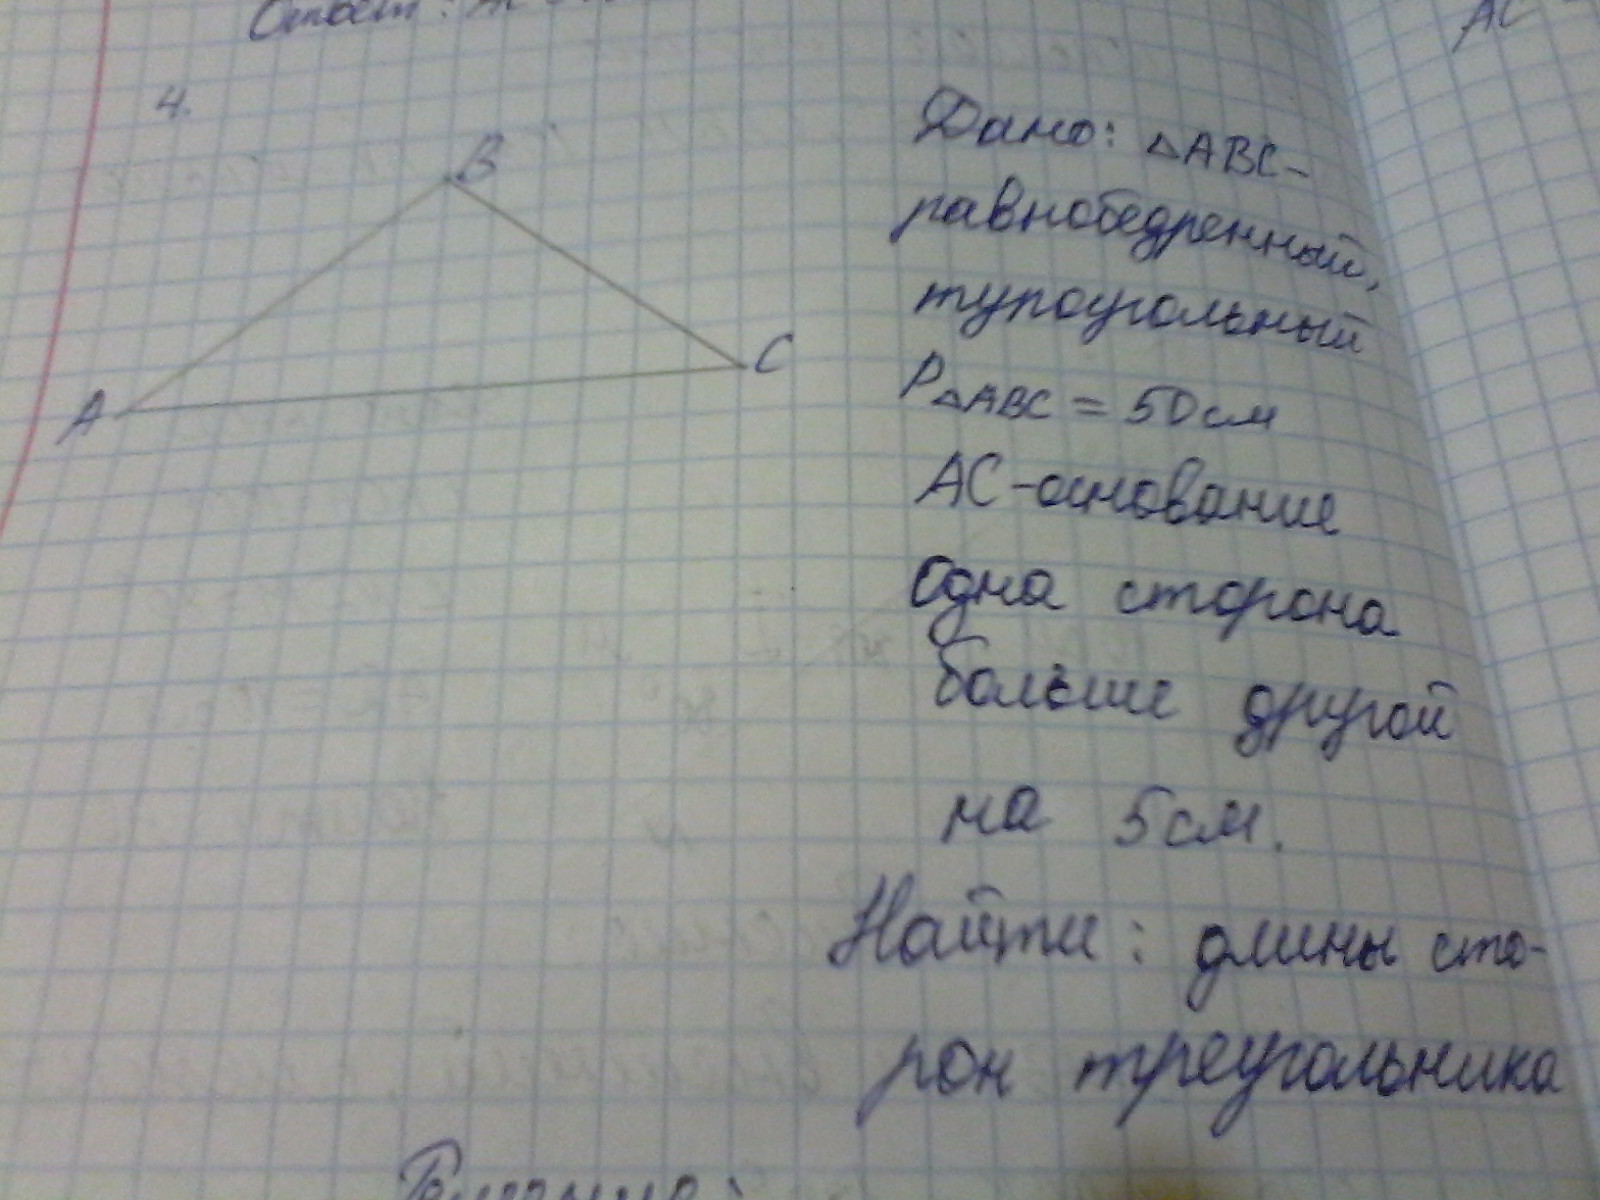 Ответ:
AC
4.
B
A
C
Дано: △ABC-
равнобедренный,
тупоугольный
P△ABC = 50 см
AC-основание
одна сторона
больше другой
на 5 см.
Найти: длины сто-
рон треугольника
Решение: